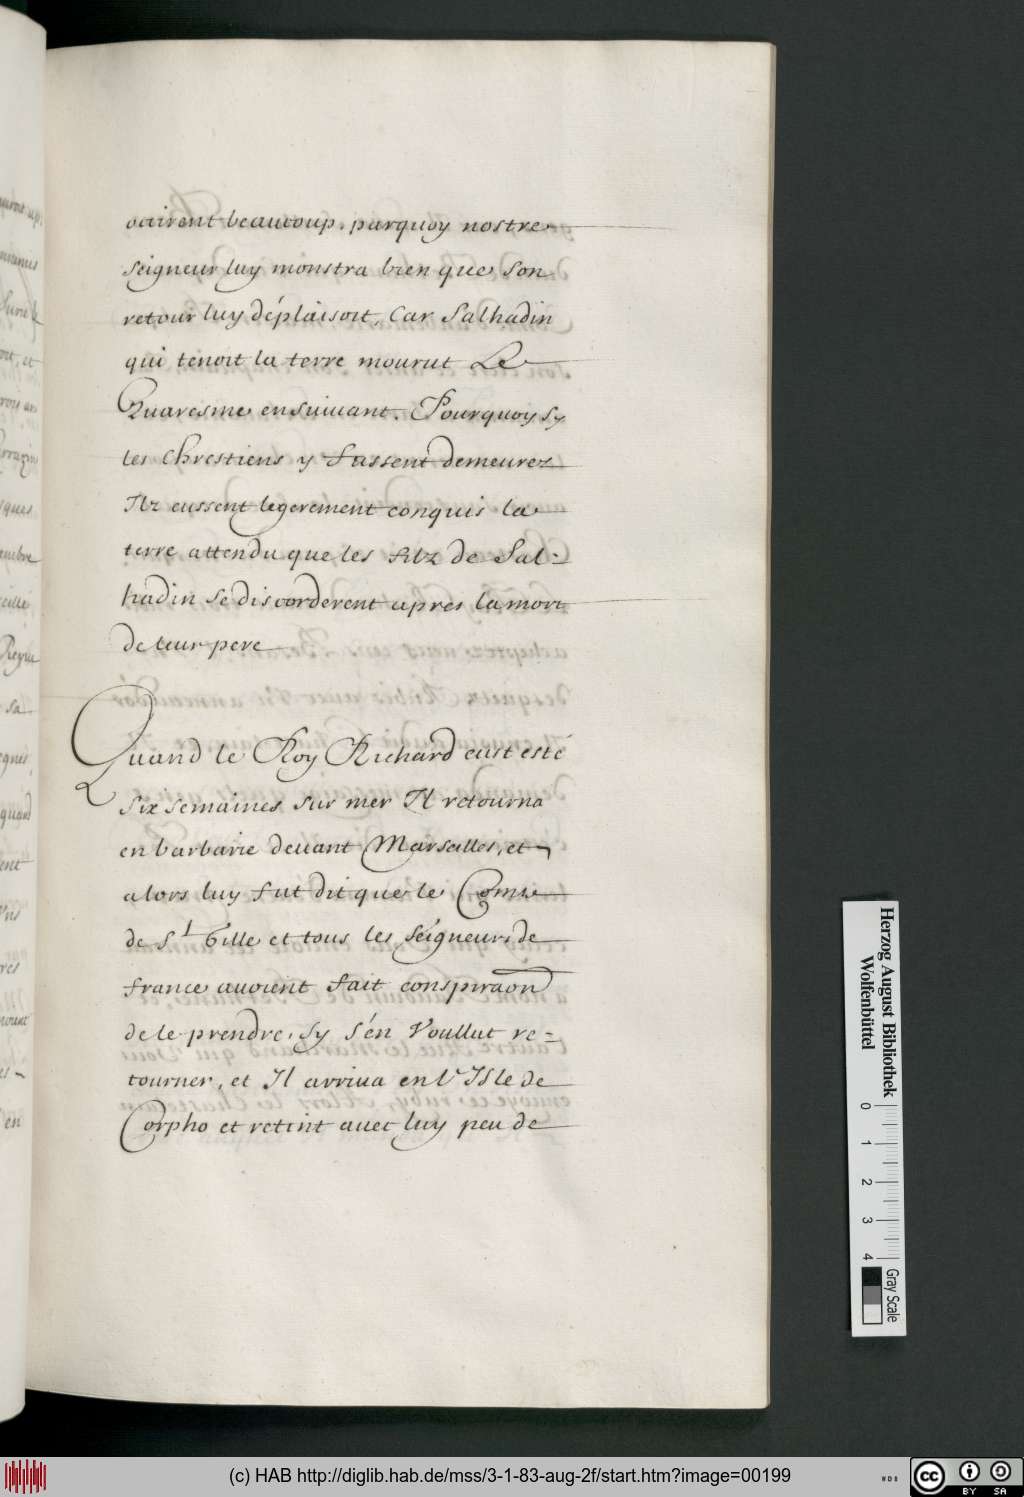 beaucoup. parquoy nostre
seigneur luy monstra bien que son
retour luy déplaisoit, Car Salhadin
qui tenoit la terre mourut Le
Quaresme ensuivant. Pourquoy sy
les Chrestiens y fussent demeurez
Ilz eussent legerement conquis la
terre attendu que les filz de Sal-
hadin se discorderent apres la mort
de leur pere
Quand le Roy Richard eust esté
six semaines sur mer Il retourna
en barbarie devant Marseilles, et
alors luy fut dit que le Comte
de St Gille et tous les séigneurs de
france avoient fait conspiraon
de le prendre, sy s'en Voullut re=
tourner, et Il arriva en l'Isle de
Corpho et retint avec luy peu de
Herzog August Bibliothek
Wolfenbüttel
0 1 2 3 4
Gray Scale
(c) HAB http://diglib.hab.de/mss/3-1-83-aug-2f/start.htm?image=00199
cc BY SA